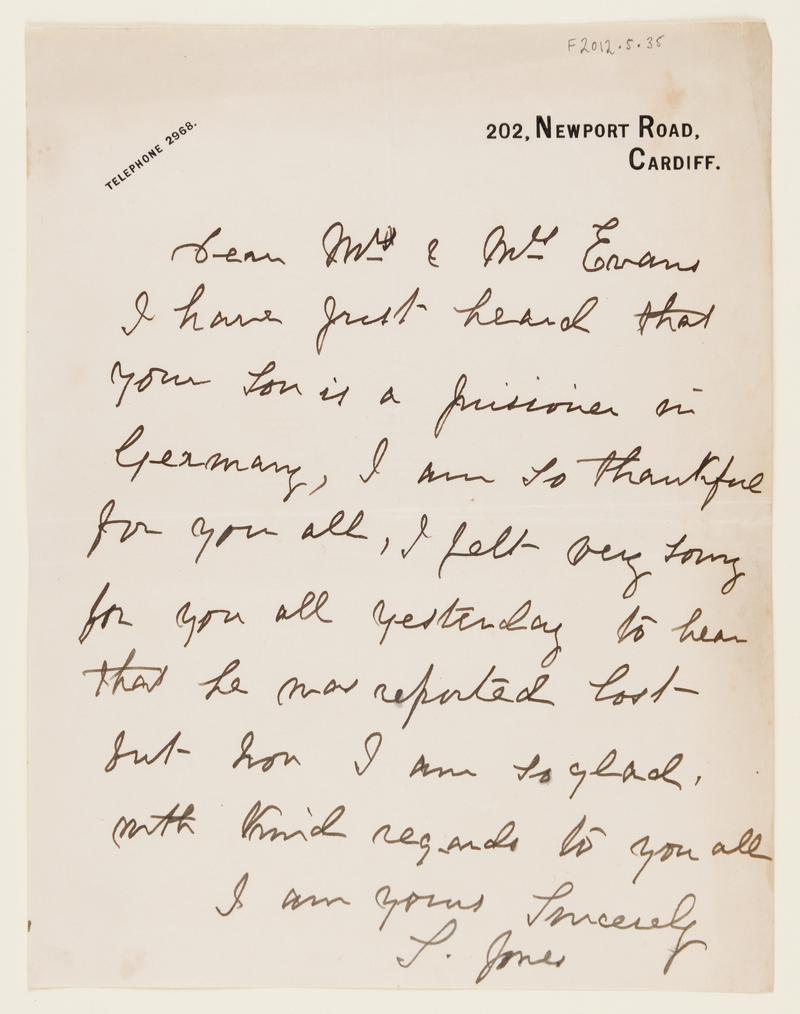 F2012.5.35
TELEPHONE 2968.
202, NEWPORT ROAD,
CARDIFF.
Dear Mrs & Mrs Evans
I have just heard that
your son is a prisioner in
Germany, I am so thankful
for you all, I felt very sorry
for you all yesterday to hear
that he was reported lost
but now I am so glad.
with kind regards to you all
I am yours Sincerely
S. Jones